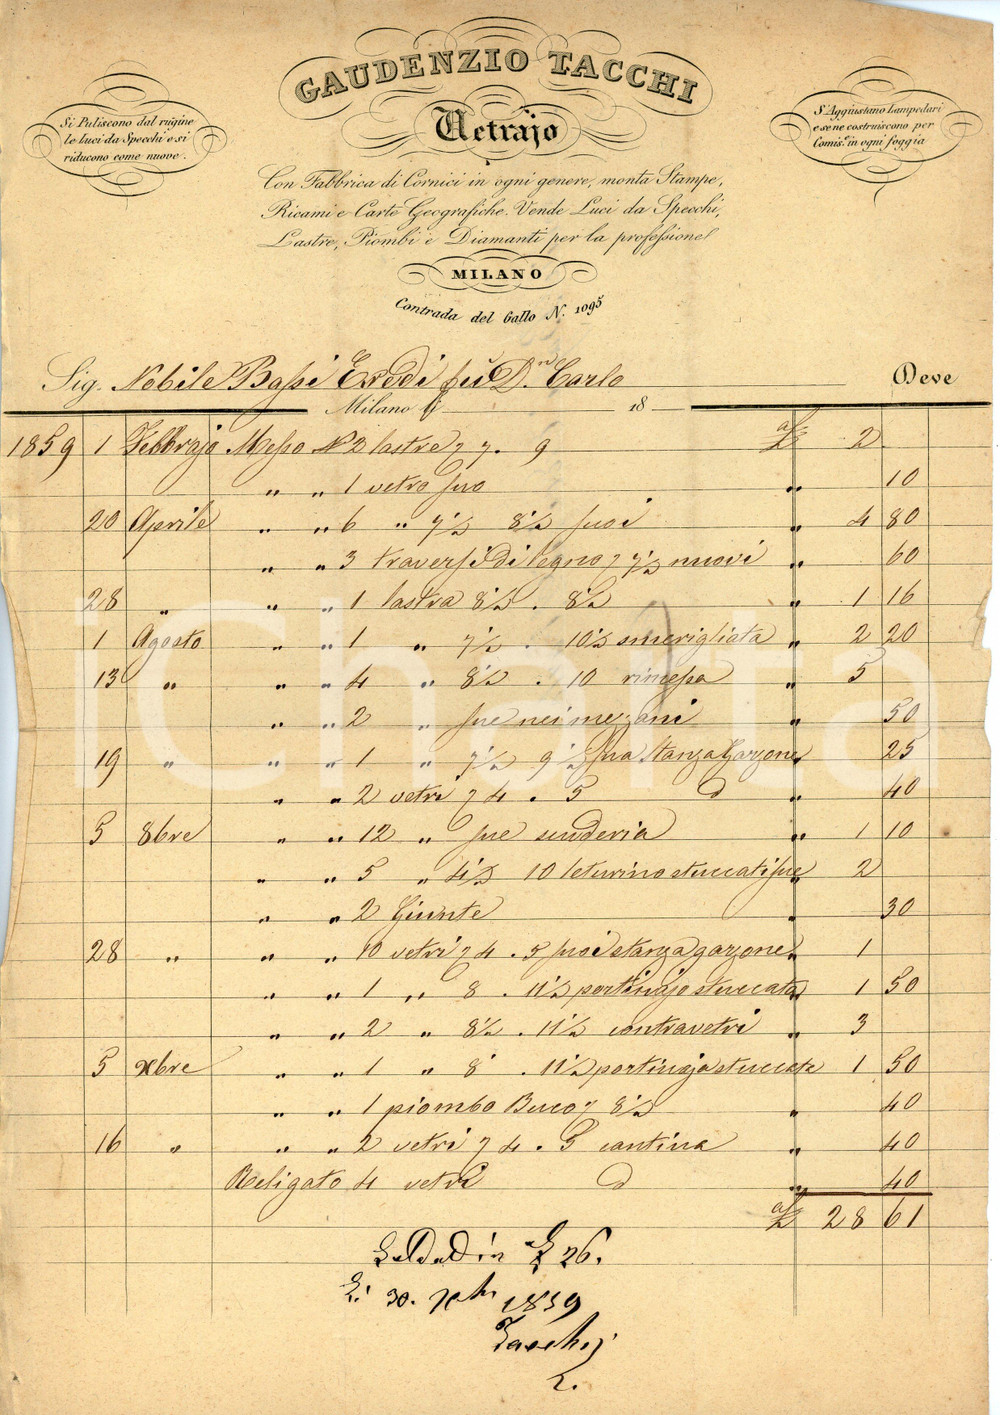 GAUDENZIO TACCHI
Vetrajo
Si Puliscono dal rugine
le luci da Specchi e si
riducono come nuove.
S'Aggiustano Lampedari
e se ne costruiscono per
Comis.e in ogni foggia
Con Fabbrica di Cornici in ogni genere, monta Stampe,
Ricami e Carte Geografiche. Vende Luci da Specchi,
Lastre, Piombi e Diamanti per la professione
MILANO
Contrada del Gallo N. 1095
Sig. Nobile Bassi Eredi fu D.n Carlo Deve
Milano li 18
1859 1 Febbrajo Messo N 2 lastre 7 7. 9 a£ 2
" " 1 vetro suo " 10
20 Aprile " " 6 " 7½ 8½ suoi " 4 80
" " 3 traversi di legno 7 7½ nuovi " 60
28 " " " 1 lastra 8½ . 8½ " 1 16
1 Agosto " " 1 " 7½ . 10½ smerigliata " 2 20
13 " " " 4 " 8½ . 10 rimessa " 5
" " 2 " sue nei mezzani " 50
19 " " " 1 " 7½ 9½ sua stanza Garzone " 25
" " 2 vetri 7 4 . 5 d " 40
5 8bre " " 12 " sue scuderia " 1 10
" " 5 " 4½ 10 stuccati sue " 2
" " 2 Giunte " 30
28 " " " 10 vetri 7 4 . 5 suoi stanza garzone " 1
" " 1 " 8 . 11½ portinajo stuccata " 1 50
" " 2 " 8½ . 11½ contravetri " 3
5 Xbre " " 1 " 8 . 11½ portinajo stuccata " 1 50
" " 1 piombo Buco 7 8½ " 40
16 " " " 2 vetri 7 4 . 5 cantina " 40
Religato 4 vetri d " 40
a£ 28 61
Saldad in a£ 26.
Li 30. Xbr 1859
Tacchi
iCharta